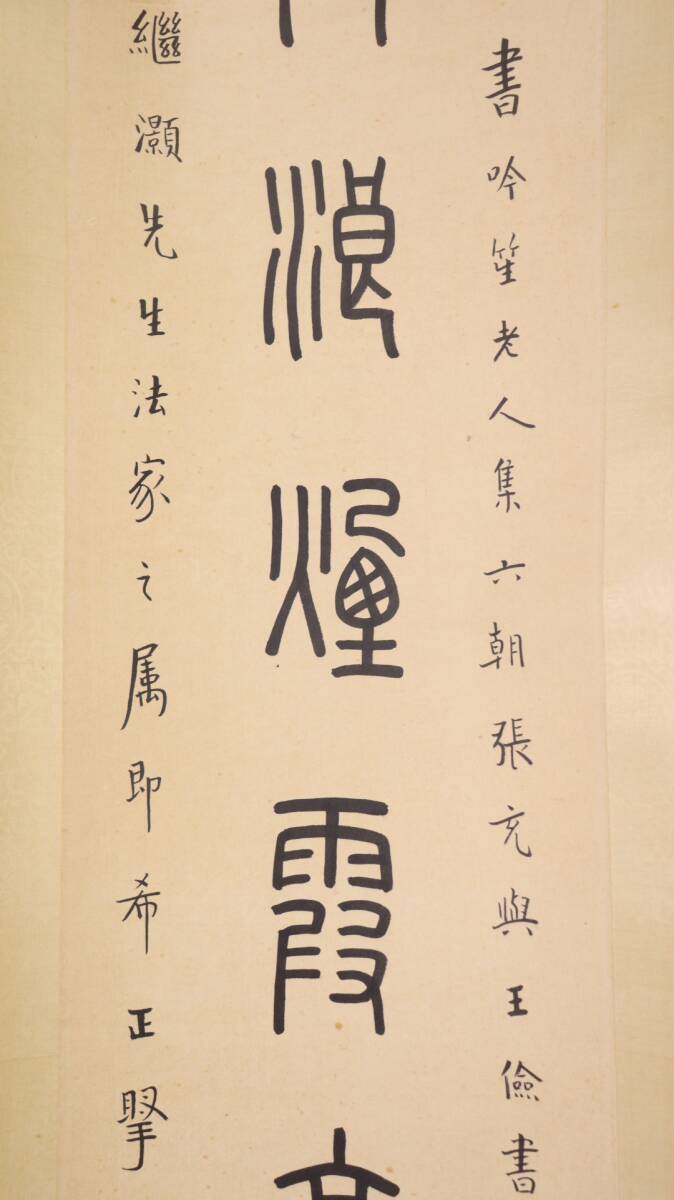 書吟笙老人集六朝張充與王儉書
浪煙霞
繼灝先生法家之属即希正掔